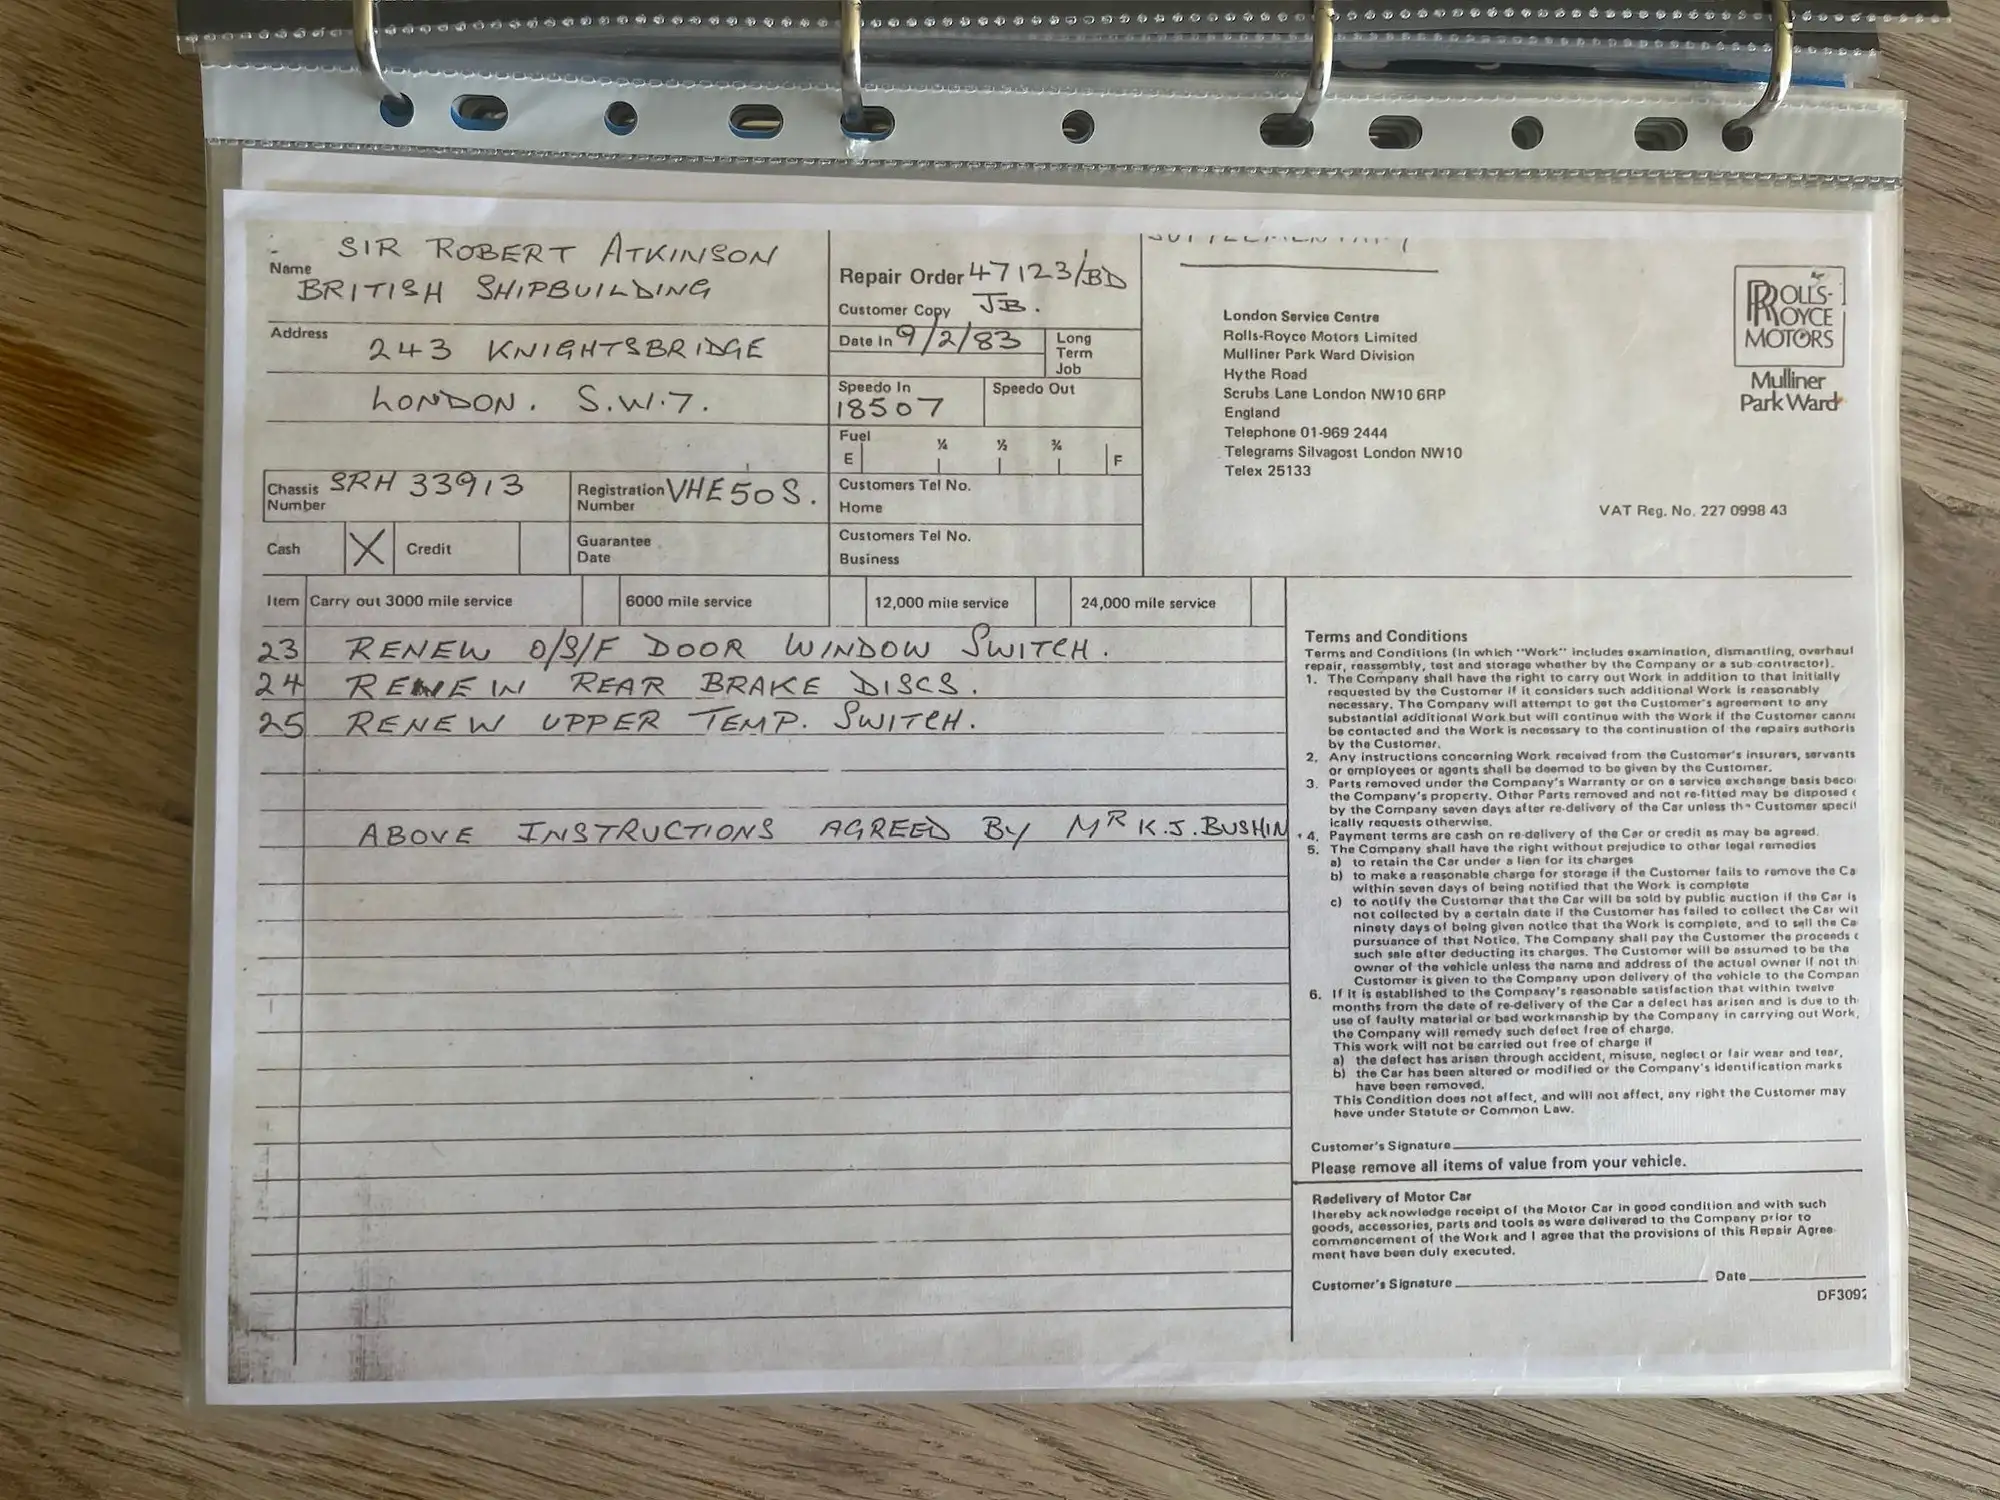 SIR ROBERT ATKINSON
Name
BRITISH SHIPBUILDING
Address
243 KNIGHTSBRIDGE
LONDON. S.W.7.
Chassis Number SRH 33913
Registration Number VHE 50 S.
Cash X Credit
Guarantee Date
Repair Order 47123/BD
Customer Copy JB.
Date In 9/2/83
Long Term Job
Speedo In
18507
Speedo Out
Fuel
E ¼ ½ ¾ F
Customers Tel No.
Home
Customers Tel No.
Business
SUPPLEMENTARY
London Service Centre
Rolls-Royce Motors Limited
Mulliner Park Ward Division
Hythe Road
Scrubs Lane London NW10 6RP
England
Telephone 01-969 2444
Telegrams Silvagost London NW10
Telex 25133
RR
ROLLS-
ROYCE
MOTORS
Mulliner
Park Ward
VAT Reg. No. 227 0998 43
Item Carry out 3000 mile service 6000 mile service 12,000 mile service 24,000 mile service
23 RENEW O/S/F DOOR WINDOW SWITCH.
24 RENEIN REAR BRAKE DISCS.
25 RENEW UPPER TEMP. SWITCH.
ABOVE INSTRUCTIONS AGREED BY MR K.J. BUSHIN
Terms and Conditions
Terms and Conditions (In which "Work" includes examination, dismantling, overhaul
repair, reassembly, test and storage whether by the Company or a sub contractor).
1. The Company shall have the right to carry out Work in addition to that initially
requested by the Customer if it considers such additional Work is reasonably
necessary. The Company will attempt to get the Customer's agreement to any
substantial additional Work but will continue with the Work if the Customer cann
be contacted and the Work is necessary to the continuation of the repairs authoris
by the Customer.
2. Any instructions concerning Work received from the Customer's insurers, servants
or employees or agents shall be deemed to be given by the Customer.
3. Parts removed under the Company's Warranty or on a service exchange basis beco
the Company's property. Other Parts removed and not re-fitted may be disposed
by the Company seven days after re-delivery of the Car unless the Customer specif
ically requests otherwise.
4. Payment terms are cash on re-delivery of the Car or credit as may be agreed.
5. The Company shall have the right without prejudice to other legal remedies
a) to retain the Car under a lien for its charges
b) to make a reasonable charge for storage if the Customer fails to remove the Ca
within seven days of being notified that the Work is complete
c) to notify the Customer that the Car will be sold by public auction if the Car is
not collected by a certain date if the Customer has failed to collect the Car wit
ninety days of being given notice that the Work is complete, and to sell the Ca
pursuance of that Notice. The Company shall pay the Customer the proceeds
such sale after deducting its charges. The Customer will be assumed to be the
owner of the vehicle unless the name and address of the actual owner if not th
Customer is given to the Company upon delivery of the vehicle to the Compan
6. If it is established to the Company's reasonable satisfaction that within twelve
months from the date of re-delivery of the Car a defect has arisen and is due to th
use of faulty material or bad workmanship by the Company in carrying out Work,
the Company will remedy such defect free of charge.
This work will not be carried out free of charge if
a) the defect has arisen through accident, misuse, neglect or fair wear and tear,
b) the Car has been altered or modified or the Company's identification marks
have been removed.
This Condition does not affect, and will not affect, any right the Customer may
have under Statute or Common Law.
Customer's Signature
Please remove all items of value from your vehicle.
Redelivery of Motor Car
I hereby acknowledge receipt of the Motor Car in good condition and with such
goods, accessories, parts and tools as were delivered to the Company prior to
commencement of the Work and I agree that the provisions of this Repair Agree
ment have been duly executed.
Customer's Signature Date
DF3092